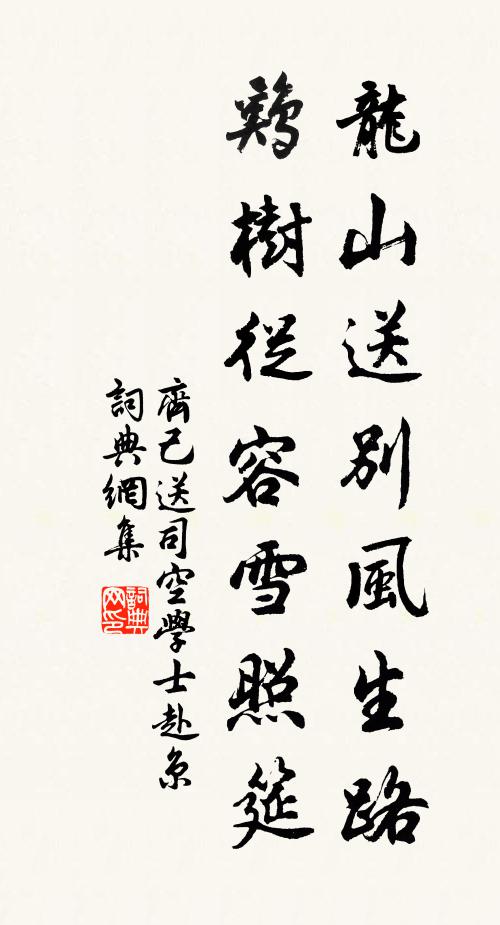 龍山送別風生路
鷄樹從容雪照筵
齊己送司空學士赴京
詞典網集
詞典
网印